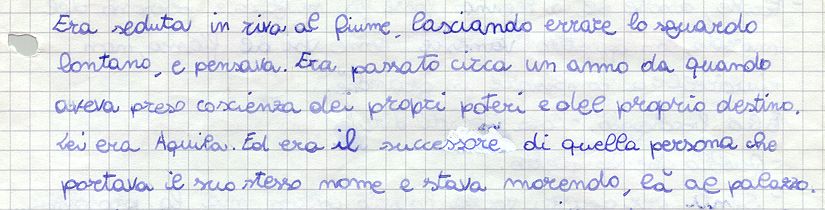 Era seduta in riva al fiume, lasciando errare lo sguardo
lontano, e pensava. Era passato circa un anno da quando
aveva preso coscienza dei propri poteri e del proprio destino.
Lei era Aquila. Ed era il successore di quella persona che
portava il suo stesso nome e stava morendo, là al palazzo.